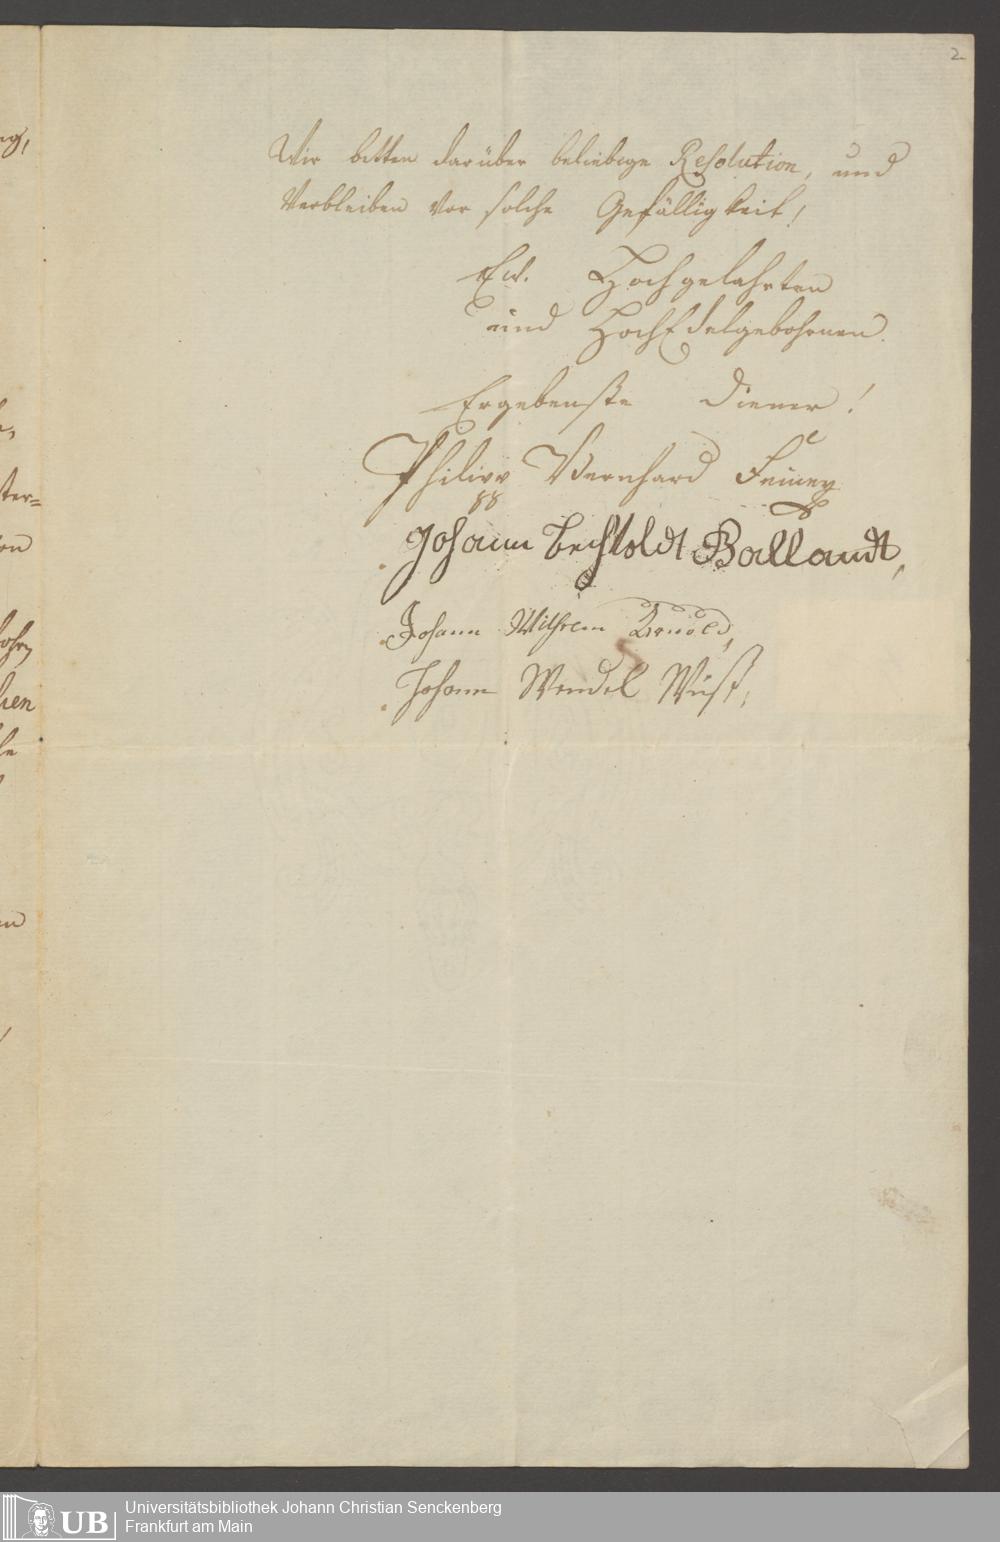 2
Wir bitten darüber beliebige Resolution, und
Verbleiben vor solche Gefälligkeit!
Ew. Hochgelahrten
und HochEdelgebohrnen.
Ergebenste Diener!
Philipp Bernhard
Johann Bechtoldt Ballandt,
Johann Wilhelm Arnold,
Johann Wendel Wüst,
UB
Universitätsbibliothek Johann Christian Senckenberg
Frankfurt am Main